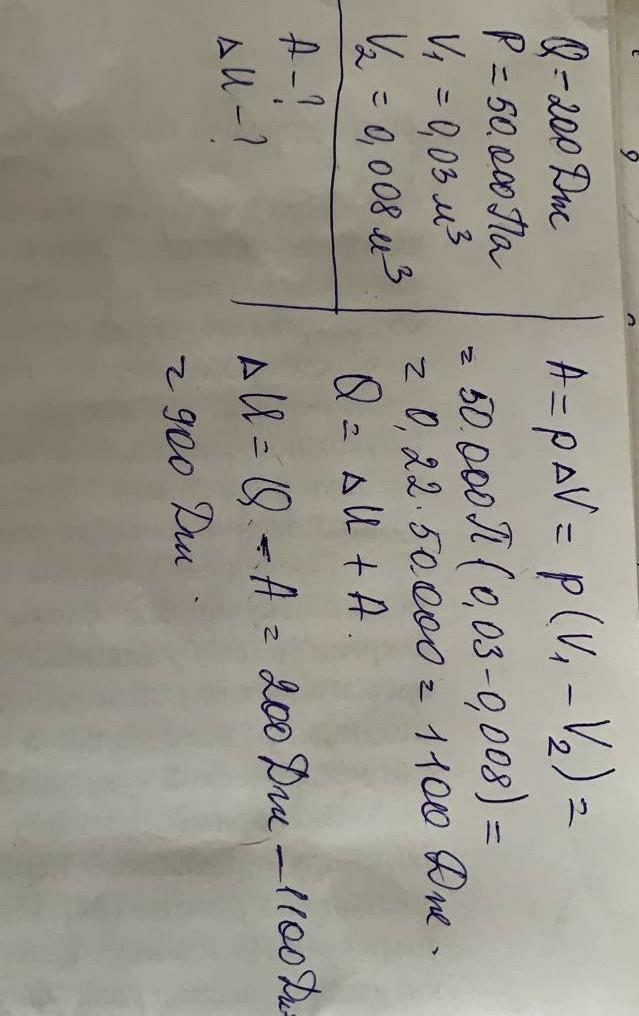 Q = 200 Дж
P = 50.000 Па
V₁ = 0,03 м³
V₂ = 0,008 м³
A – ?
ΔU – ?
A = pΔV = p(V₁ – V₂) =
= 50.000 П (0,03 – 0,008) =
= 0,22 · 50.000 = 1100 Дж.
Q = ΔU + A.
ΔU = Q – A = 200 Дж – 1100 Дж =
= 900 Дж.